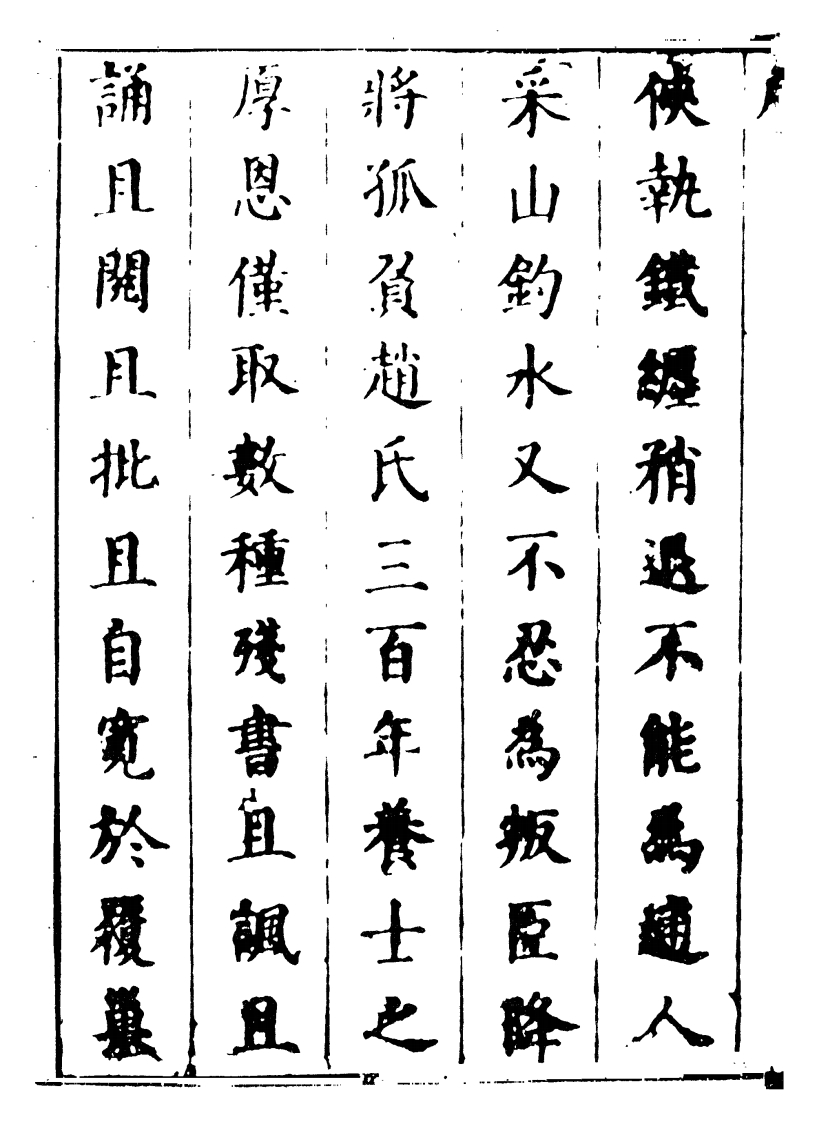 俠執鐵纏稍退不能為逋人
采山釣水又不忍為叛臣降
將孤負趙氏三百年養士之
厚恩僅取數種殘書且諷且
誦且閱且批且自寬於覆巢